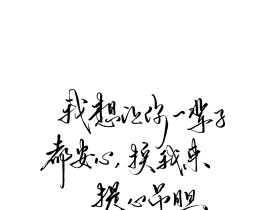 我想让你一辈子
都安心，换我来
提心吊胆